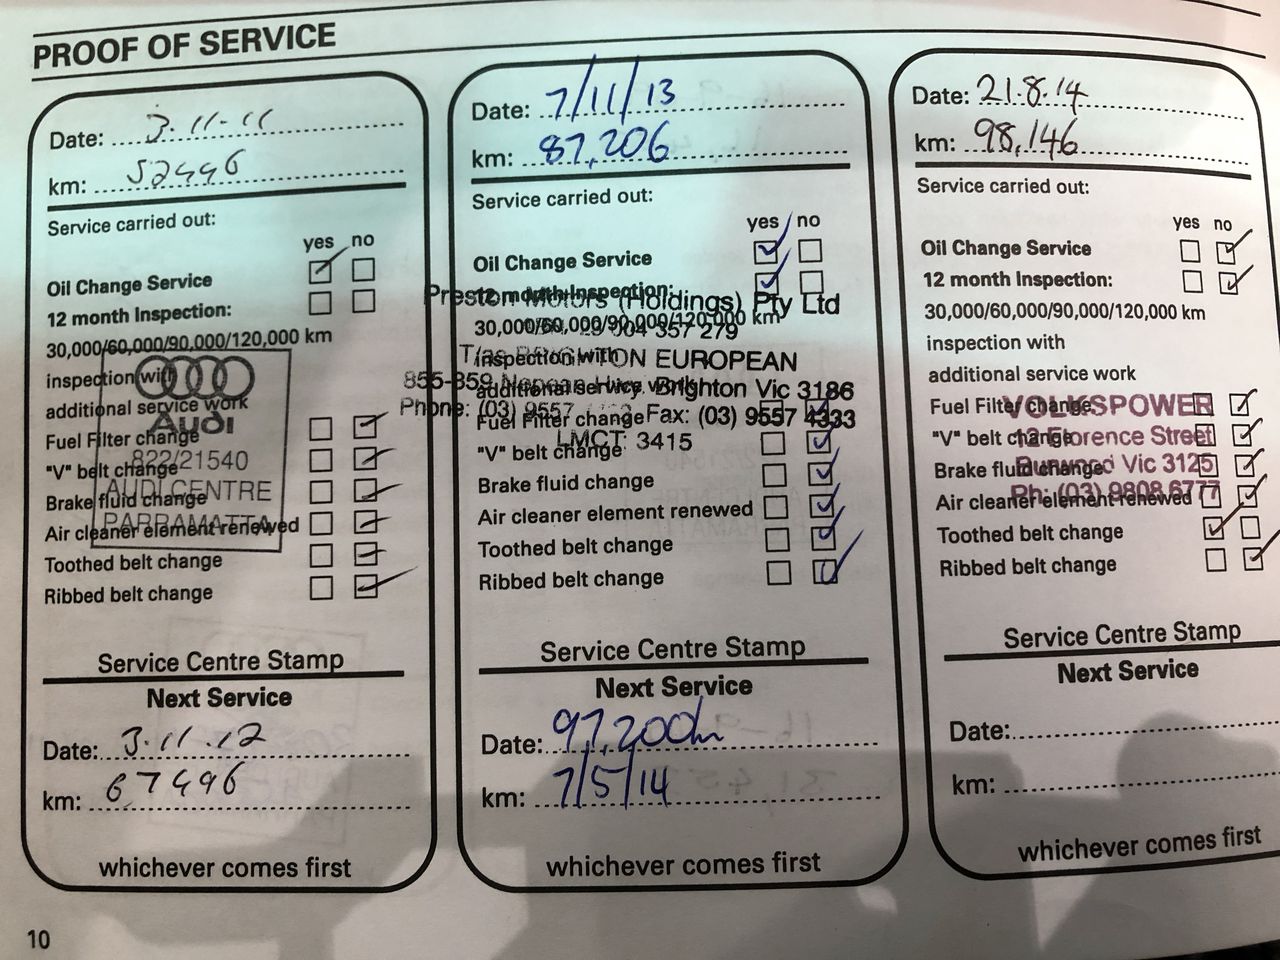 PROOF OF SERVICE
Date: 3.11.11
km: 52496
Service carried out:
yes no
Oil Change Service
12 month Inspection:
30,000/60,000/90,000/120,000 km
inspection with
additional service work
Fuel Filter change
"V" belt change
Brake fluid change
Air cleaner element renewed
Toothed belt change
Ribbed belt change
Audi
822/21540
AUDI CENTRE
PARRAMATTA
Service Centre Stamp
Next Service
Date: 3.11.12
km: 67496
whichever comes first
Date: 7/11/13
km: 87,206
Service carried out:
yes no
Oil Change Service
12 month Inspection:
30,000/60,000/90,000/120,000 km
inspection with
additional service work
Fuel Filter change
"V" belt change
Brake fluid change
Air cleaner element renewed
Toothed belt change
Ribbed belt change
Preston Motors (Holdings) Pty Ltd
004 357 279
T/as BRIGHTON EUROPEAN
855-859 Nepean Brighton Vic 3186
Phone: (03) 9557 Fax: (03) 9557 4333
LMCT: 3415
Service Centre Stamp
Next Service
Date: 97,200km
km: 7/5/14
whichever comes first
Date: 21.8.14
km: 98,146
Service carried out:
yes no
Oil Change Service
12 month Inspection:
30,000/60,000/90,000/120,000 km
inspection with
additional service work
Fuel Filter change
"V" belt change
Brake fluid change
Air cleaner element renewed
Toothed belt change
Ribbed belt change
VOLKSPOWER
12 Florence Street
Burwood Vic 3125
Ph: (03) 9808 6777
Service Centre Stamp
Next Service
Date:
km:
whichever comes first
10